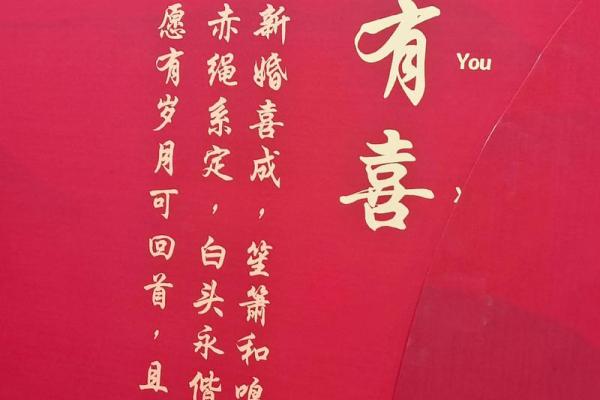 有喜
You
新婚喜成，笙箫和鸣
赤绳系定，白头永偕
愿有岁月可回首，且